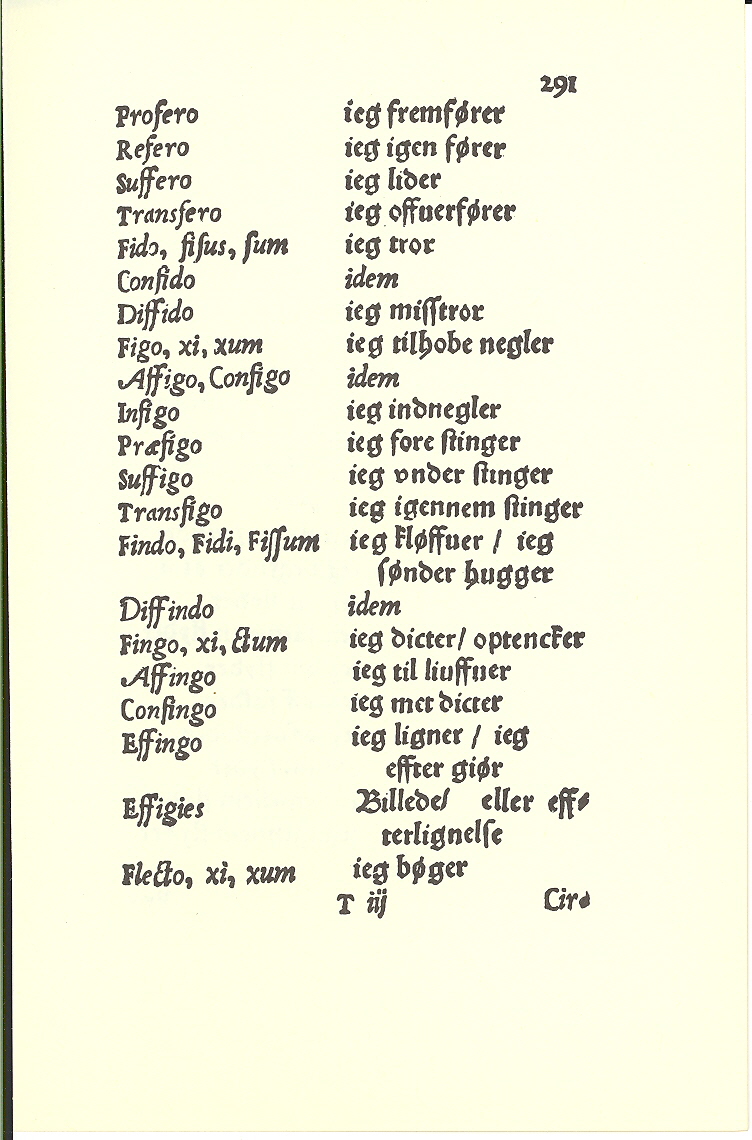 291
Profero ieg fremfører
Refero ieg igen fører
Suffero ieg lider
Transfero ieg offuerfører
Fido, fiſus, ſum ieg tror
Confido idem
Diffido ieg miſſtror
Figo, xi, xum ieg tilhobe negler
Affigo, Configo idem
Infigo ieg indnegler
Præfigo ieg fore ſtinger
Suffigo ieg vnder ſtinger
Transfigo ieg igennem ſtinger
Findo, Fidi, Fiſſum ieg kløffuer / ieg
ſønder hugger
Diffindo idem
Fingo, xi, ctum ieg dicter/ optencker
Affingo ieg til liuffuer
Confingo ieg met dicter
Effingo ieg ligner / ieg
effter giør
Effigies Billede/ eller eff⸗
terlignelſe
Flecto, xi, xum ieg bøger
T iij Cir⸗